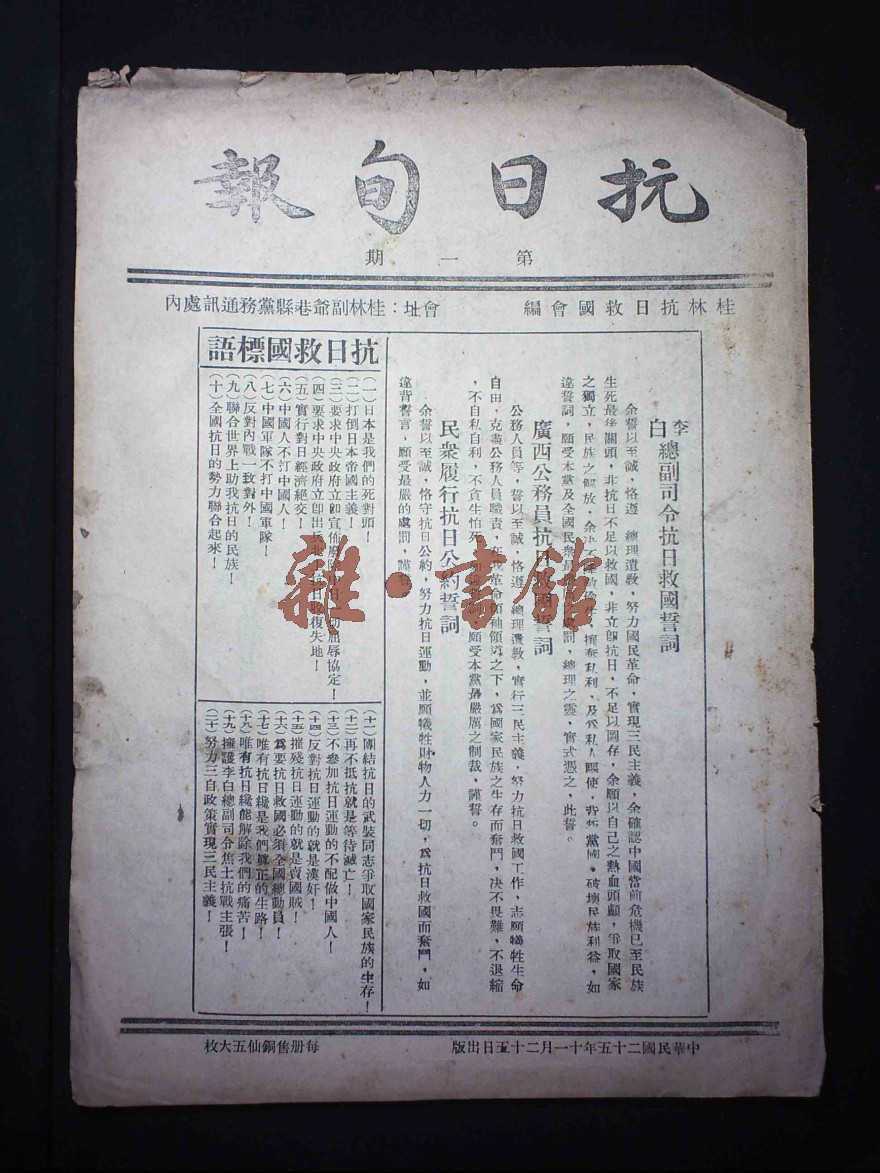 抗日旬報
第一期
桂林抗日救國會編
會址：桂林副爺巷縣黨務通訊處內
李白總副司令抗日救國誓詞
余誓以至誠，恪遵　總理遺教，努力國民革命，實現三民主義，余確認中國當前危機已至民族
生死最後關頭，非抗日不足以救國，非立即抗日，不足以圖存，余願以自己之熱血頭顱，爭取國家
之獨立，民族之解放，余决不　攘奪私利，及爲私人驅使，背叛黨國，破壞民族利益，如
違誓詞，願受本黨及全國民衆最　處罰，總理之靈，實式憑之，此誓。
廣西公務員抗日救國誓詞
公務人員等，誓以至誠，恪遵　總理遺教，實行三民主義，努力抗日救國工作，志願犧牲生命
自由，克盡公務人員職責，在我革命領袖領導之下，爲國家民族之生存而奮鬥，决不畏難，不退縮
，不自私自利，不貪生怕死，　願受本黨最嚴厲之制裁，謹誓。
民衆履行抗日公約誓詞
余誓以至誠，恪守抗日公約，努力抗日運動，並願犧牲財物人力一切，爲抗日救國而奮鬥，如
違背誓言，願受最嚴的處罰，謹誓
抗日救國標語
（一）日本是我們的死對頭！
（二）打倒日本帝國主義！
（三）要求中央政府立卽宣佈廢除中日一切屈辱協定！
（四）要求中央政府立卽出兵北上抗日收復失地！
（五）實行對日經濟絕交！
（六）中國人不打中國人！
（七）中國軍隊不打中國軍隊！
（八）反對內戰一致對外！
（九）聯合世界上助我抗日的民族！
（十）全國抗日的勢力聯合起來！
（十一）團結抗日的武裝同志爭取國家民族的生存！
（十二）再不抵抗就是等待滅亡！
（十三）不參加抗日運動的不配做中國人！
（十四）反對抗日運動的就是漢奸！
（十五）摧殘抗日運動的就是賣國賊！
（十六）爲要抗日救國必須全國總動員！
（十七）唯有抗日纔是我們眞正的生路！
（十八）唯有抗日纔能解除我們的痛苦！
（十九）擁護李白總副司令焦土抗戰主張！
（二十）努力三自政策實現三民主義！
中華民國二十五年十一月二十五日出版
每册售銅仙五大枚
雜·書館